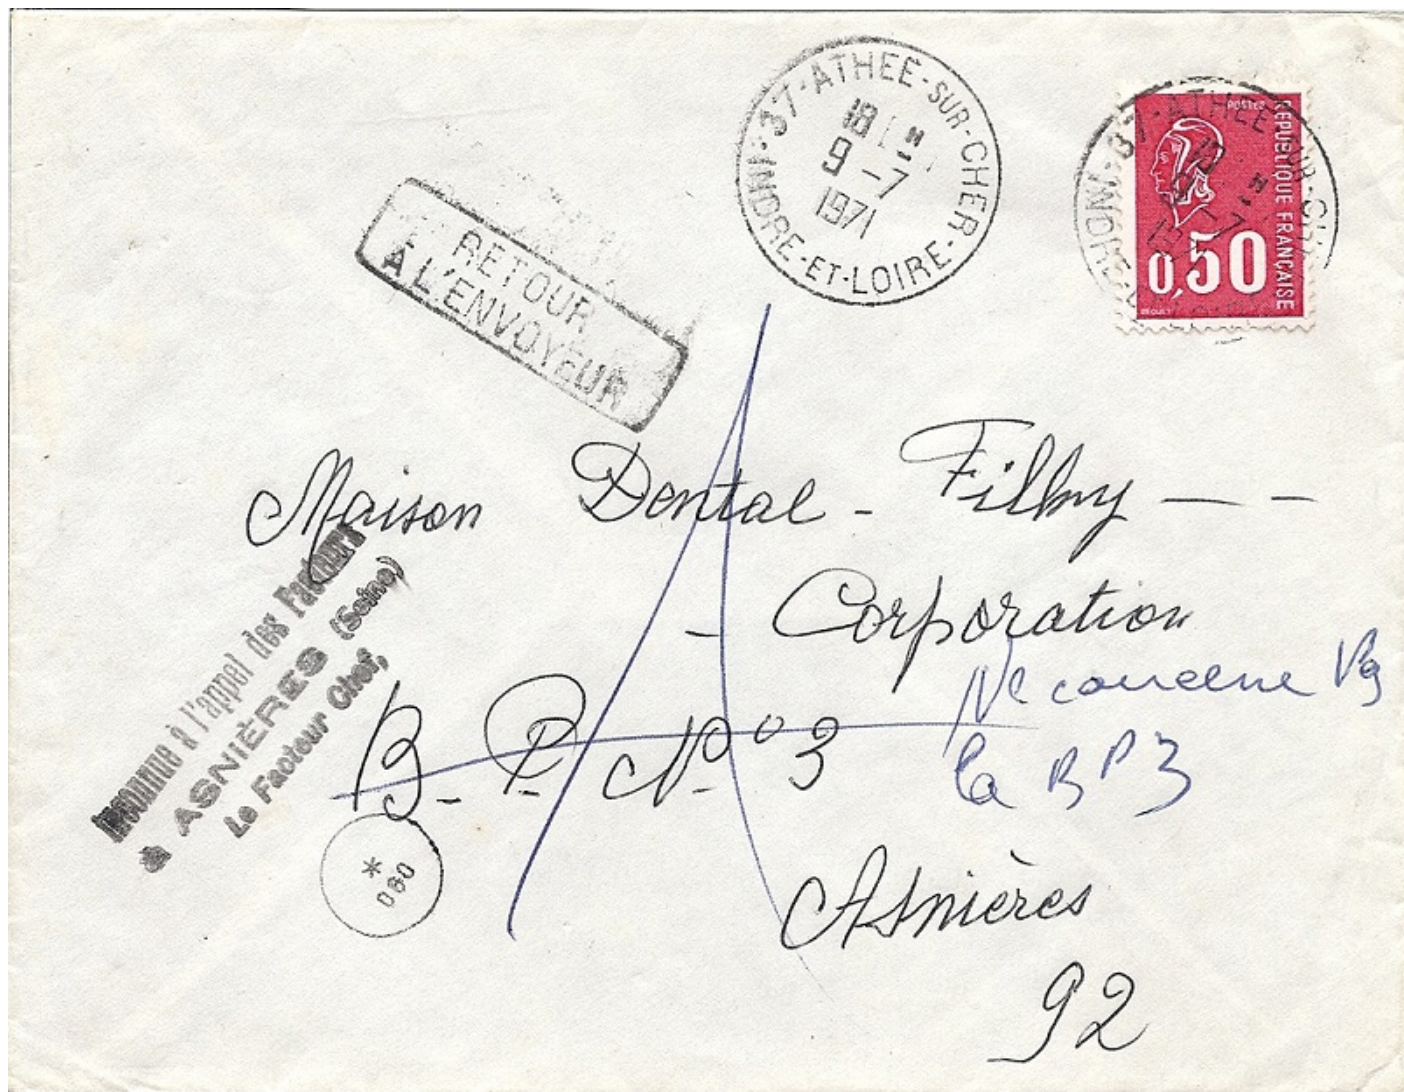 37-ATHEE-SUR-CHER-
18 H
9-7
1971
INDRE-ET-LOIRE-
POSTES
REPUBLIQUE FRANÇAISE
0,50
BEQUET
RETOUR
A L'ENVOYEUR
Maison Dental - Filhny - -
- Corporation
Ne concerne Pas
B. P. N° 3
la BP 3
Inconnue à l'appel des Facteurs
à ASNIÈRES (Seine)
Le Facteur Chef,
* 060
Asnières
92